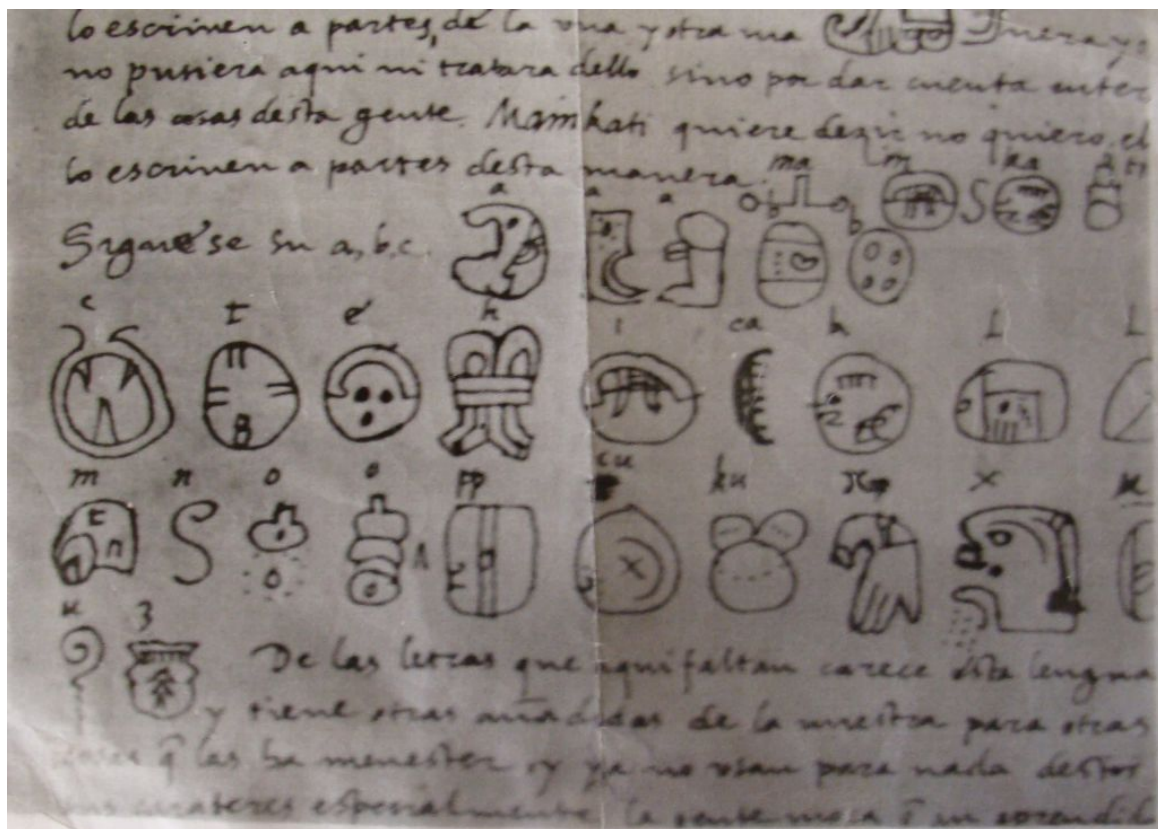 lo escriuen a partes, de la vna y otra ma nera, yo
no pusiera aqui ni tratara dello sino por dar cuenta enter
de las cosas desta gente. Mainkati quiere dezir no quiero, el
lo escriuen a partes desta manera:
ma i n ka ti
Siguese su a, b, c. a a a b b
c t e h i ca k l l
m n o o pp cu ku x
u z
De las letras que aqui faltan carece esta lengua
y tiene otras añadidas de la nuestra para otras
cosas q̃ las ha menester, y ya no vsan para nada destos
sus carateres especialmente la gente moça q̃ an aprendido